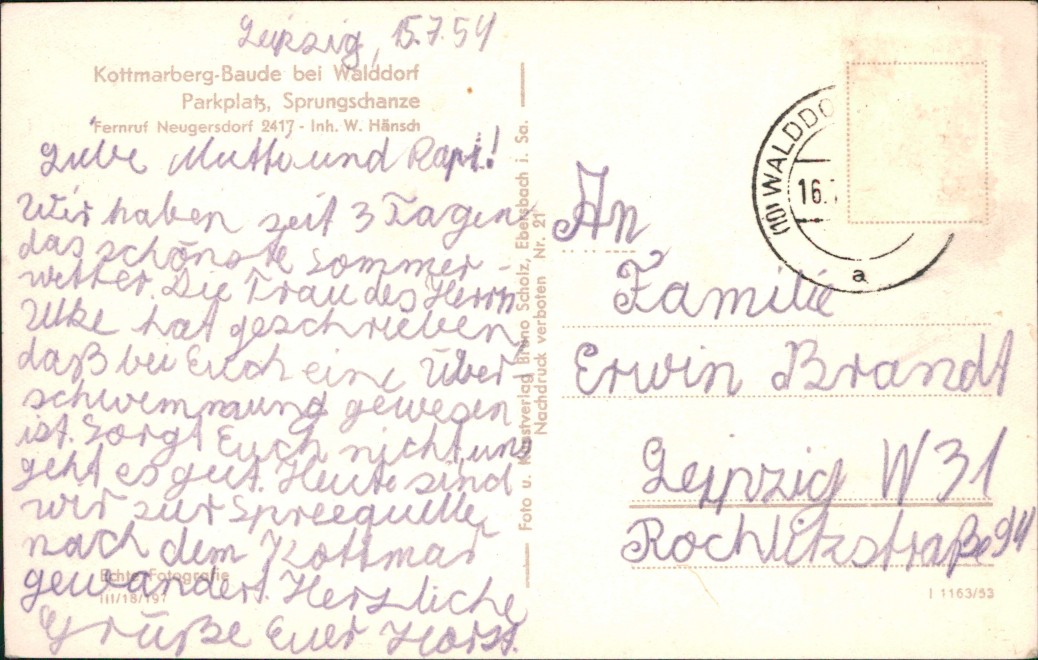 Leipzig, 15.7.54
Kottmarberg-Baude bei Walddorf
Parkplatz, Sprungschanze
Fernruf Neugersdorf 2417 - Inh. W. Hänsch
Liebe Mutti und Papi!
Wir haben seit 3 Tagen
das schönste Sommer-
wetter. Die Frau des Herrn
Ulke hat geschrieben
daß bei Euch eine Über
schwemmung gewesen
ist. Sorgt Euch nicht uns
geht es gut. Heute sind
wir zur Spreequelle,
nach dem Kottmar
gewandert. Herzliche
Grüße Euer Horst.
Echte Fotografie
III/18/197
Foto u. Kunstverlag Bruno Scholz, Ebersbach i. Sa.
Nachdruck verboten Nr. 21
(10) WALDDO
16.
a
An
Familie
Erwin Brandt
Leipzig W 31
Rochlitzstraße 94
I 1163/53